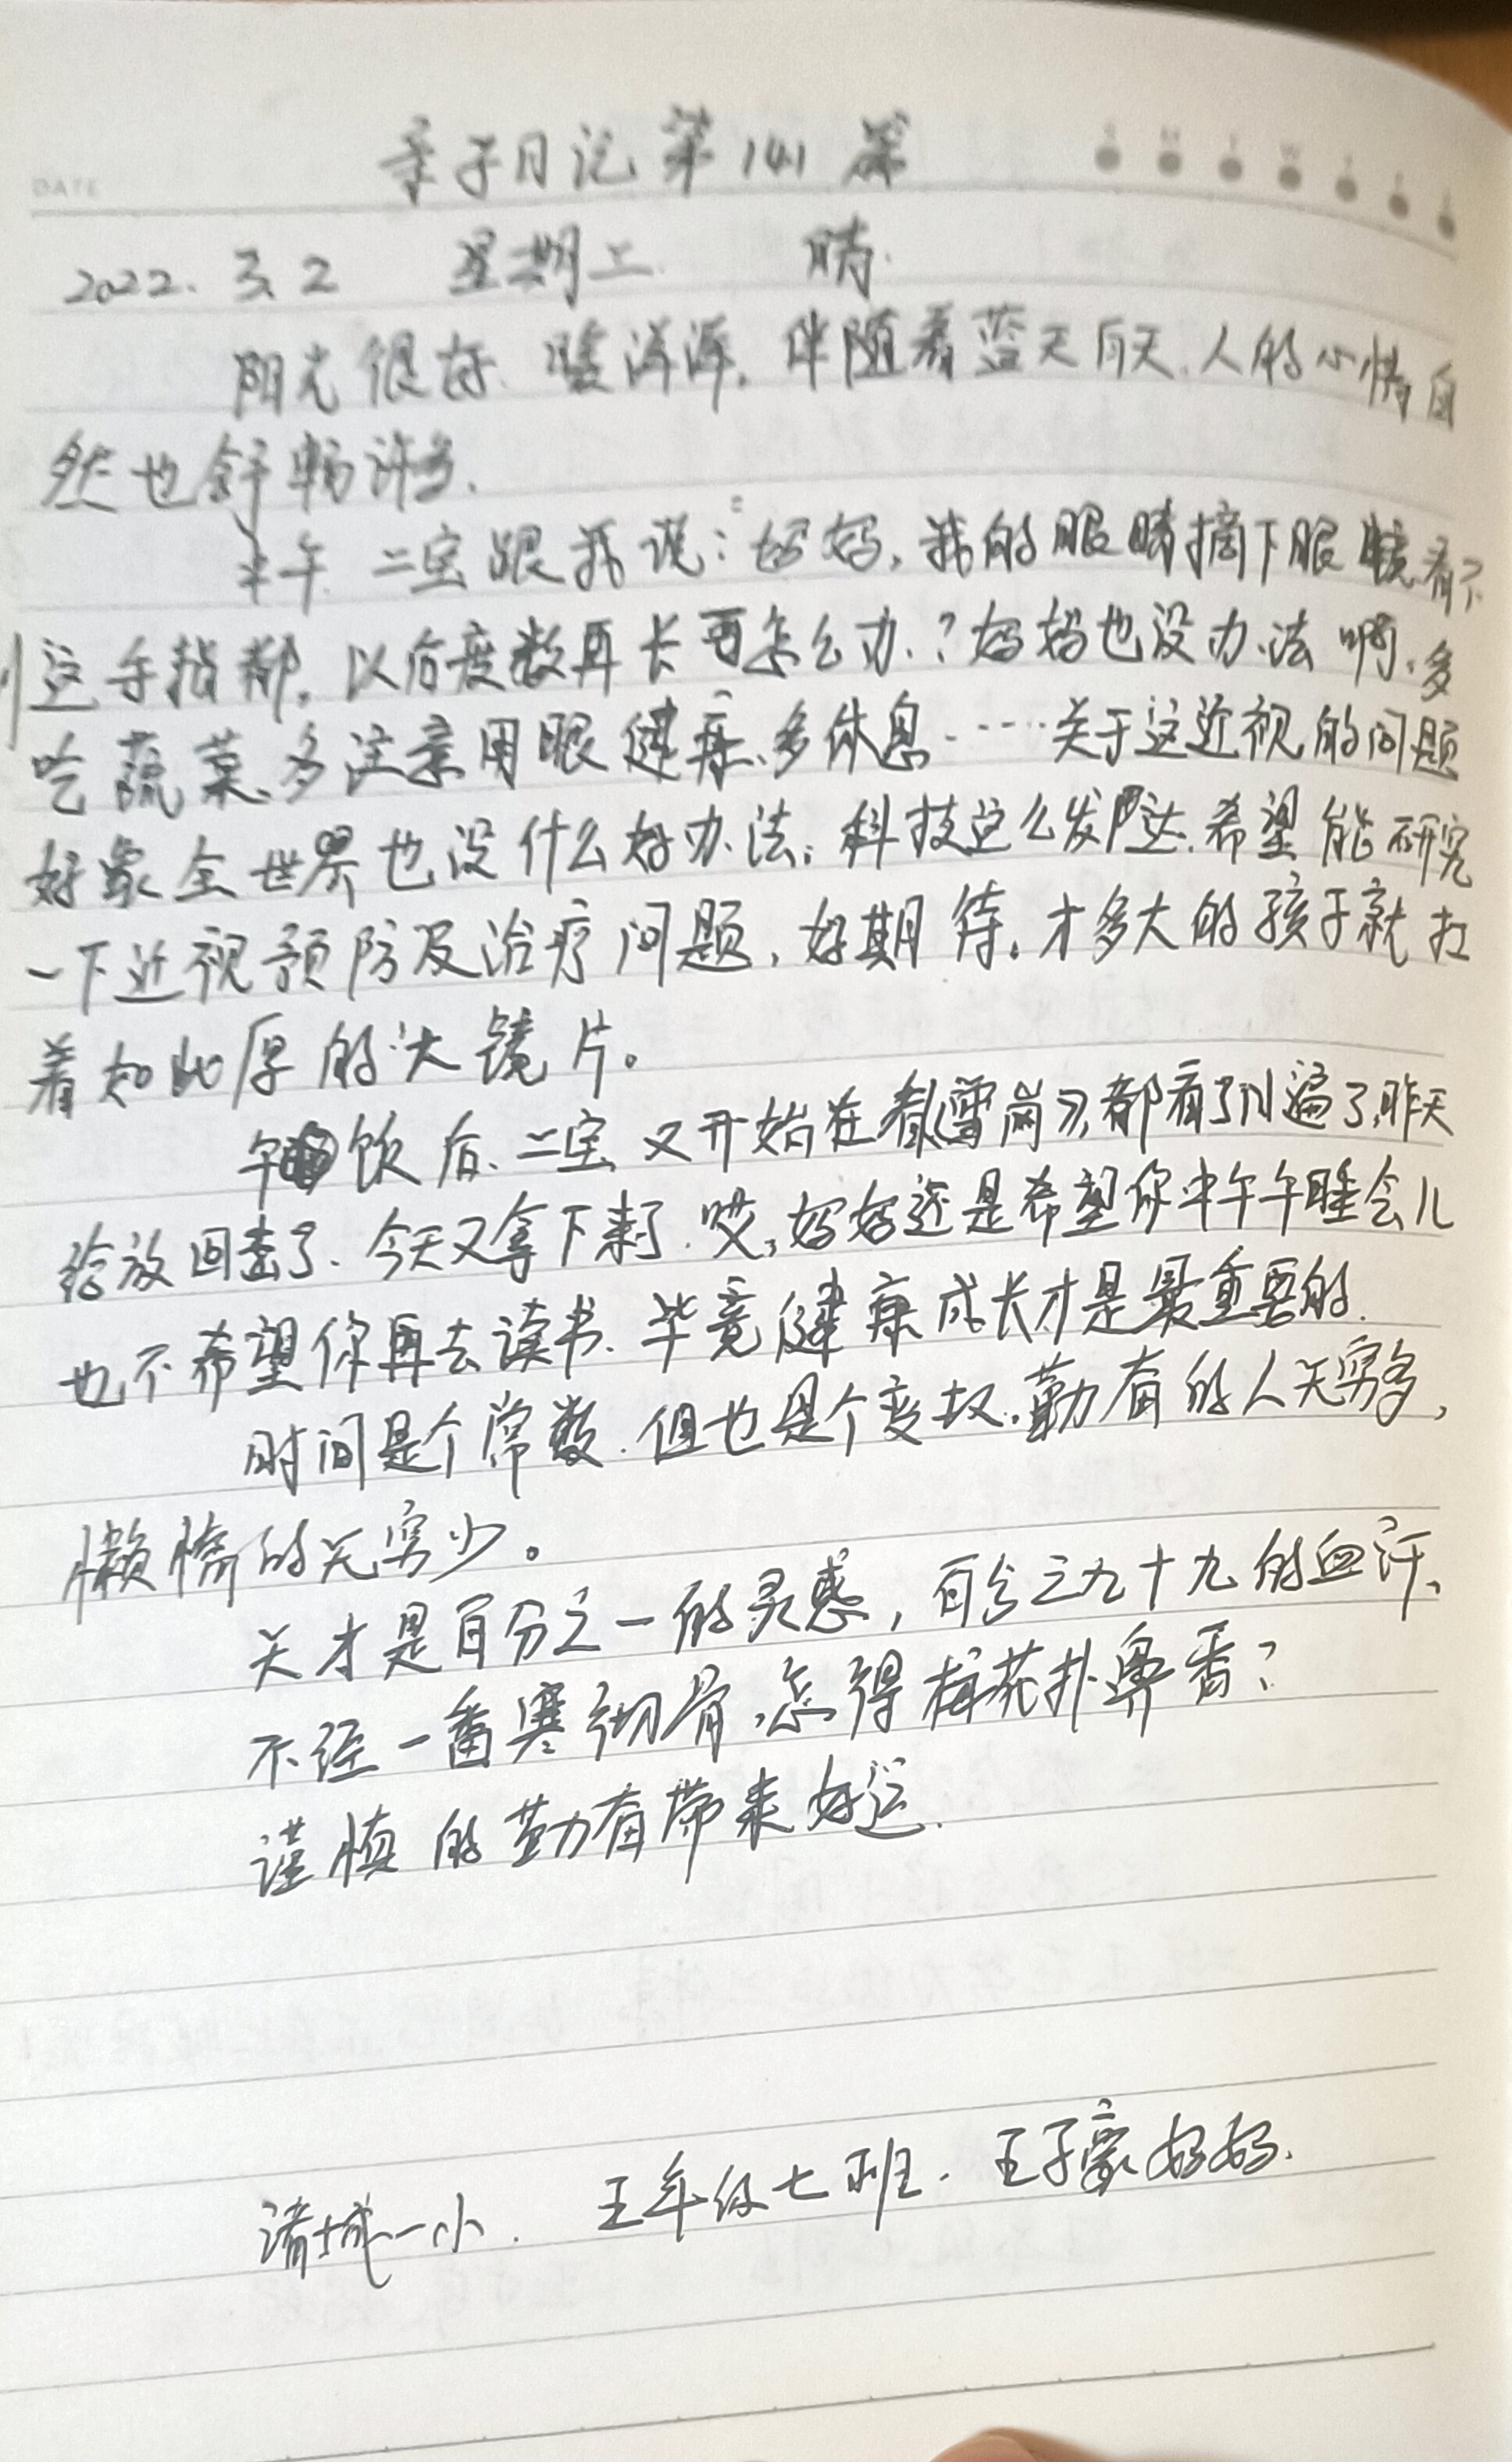 亲子日记第141篇
DATE
S M T W T F S
2022. 3. 2 星期二 晴.
阳光很好、暖洋洋,伴随着蓝天白天、人的心情自
然也舒畅许多.
中午、二宝跟我说:妈妈,我的眼睛摘下眼镜看不
到这手指都,以后度数再长可怎么办、?妈妈也没办法啊,多
吃蔬菜、多注意用眼健康、多休息……关于这近视的问题
好象全世界也没什么好办法,科技这么发达、希望能研究
一下近视预防及治疗问题,好期待。才多大的孩子就扛
着如此厚的大镜片。
午饮后、二宝又开始在看雷岗了,都看了N遍了,昨天
给放回去了、今天又拿下来了.哎,妈妈还是希望你中午午睡会儿
也不希望你再去读书、毕竟健康成长才是最重要的.
时间是个常数.但也是个变权.勤奋的人无穷多,
懒惰的无穷少。
天才是百分之一的灵感,百分之九十九的血汗、
不经一番寒彻骨,怎得梅花扑鼻香?
谨慎的勤奋带来好运.
诸城一小. 王年级七班. 王子豪妈妈.